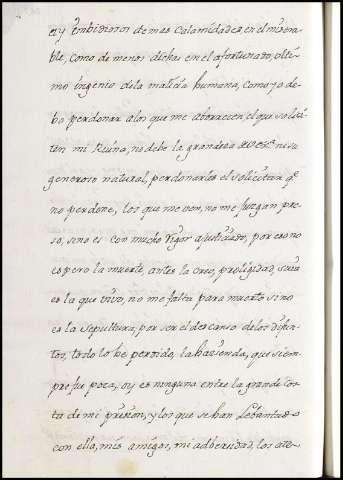 ay imbidiosos de mas Calamidades, en el misera-
ble, como de menos dichas en el afortunado, ulti-
mo ingenio dela malicia humana, como yo de-
bo perdonar alos que me aborrecen, el que solisi-
ten mi Ruina, no debe la grandesa de V. Exª. ni su
generoso natural, perdonarles el solicitar qe.
no perdone, los que me ven, no me juzgan pre-
so, sino es con mucho rigor ajusticiado, por eso no
espero la muerte, antes la creo, prolixidad, suia
es la que vivo, no me falta para muerto sino
es la sepultura, por ser el descanso delos difun-
tos, todo lo he perdido, la hazienda, que siem-
pre fue poca, oy es ninguna entre la grande cos-
ta de mi prision, y los que se han Lebantado
con ella, mis amigos, mi adbersidad, los ate-